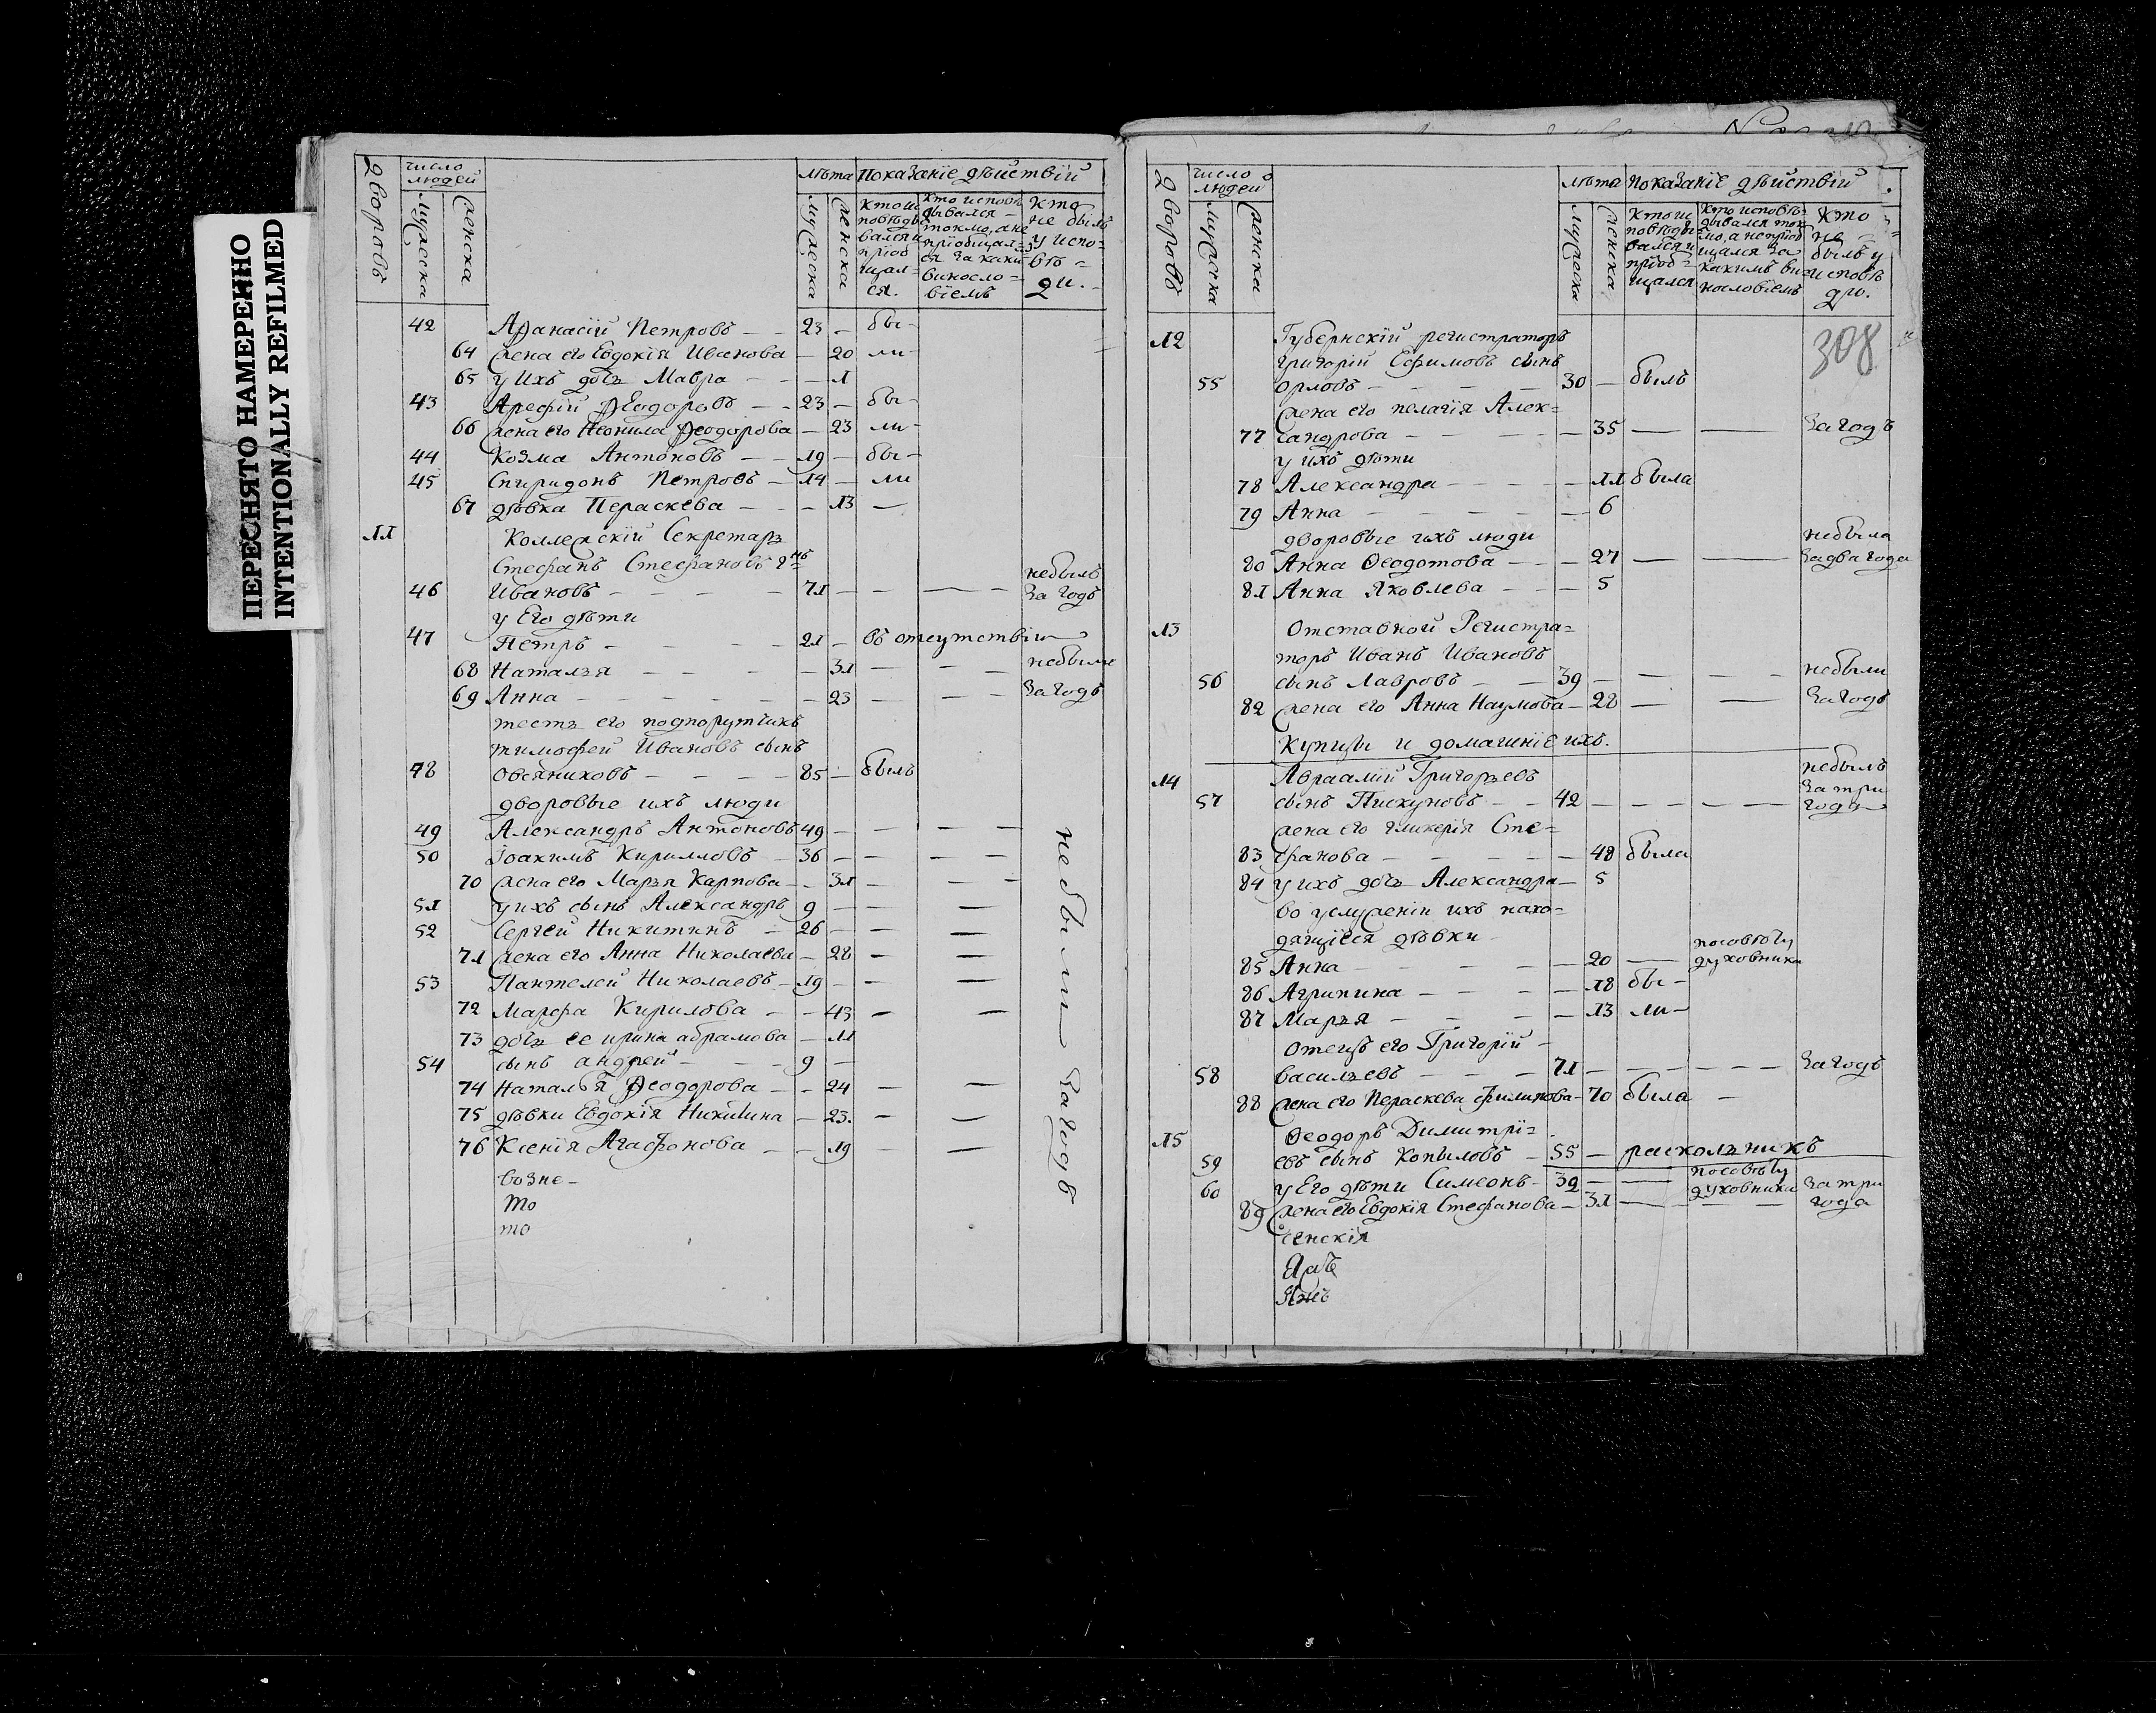 ПЕРЕСНЯТО НАМЕРЕННО
INTENTIONALLY REFILMED
дворовъ
число людей
мужеска
женска
лѣта
мужеска
женска
показанїе дѣйствїй
кто исповѣдывался и прїобщался.
кто исповѣдывался токмо, а не прїобщался за какимъ винословїемъ
кто не былъ у исповѣди.
42 Афанасїй Петровъ 23 бы-
64 жена его Евдокїя Иванова 20 ли-
65 у ихъ дочь Мавра 1
43 Арефїй Феодоровъ 23 бы-
66 жена его Неонила Феодорова 23 ли-
44 Козма Антоновъ 19 бы-
45 Спиридонъ Петровъ 14 ли
67 дѣвка Пераскева 13
11 Коллежскїй Секретарь
Стефанъ Стефановъ
46 Ивановъ 71 небылъ за годъ
у Его дѣти
47 Петръ 21 въ отсутствїи
68 Наталья 31 небыли
69 Анна 23 за годъ
тесть его подпорутчикъ
тимофей Ивановъ сынъ
48 Овсяниковъ 85 былъ
дворовые ихъ люди
49 Александръ Антоновъ 49
50 Іоакимъ Кирилловъ 36
70 жена его Марья Карпова 31
51 у ихъ сынъ Александръ 9
52 Сергей Никитинъ 26
71 жена его Анна Николаева 28
53 Пантелей Николаевъ 19
72 Марфа Кирилова 43
73 дочь ее ирина абрамова 11
54 сынъ андрей 9
74 Наталья Феодорова 24
75 дѣвки Евдокїя Никитина 23.
76 Ксенїя Агафонова 19
не были за годъ
возне-
то
то
дворовъ
число людей
мужеска
женска
лѣта
мужеска
женска
показанїе дѣйствїй
кто исповѣдывался и прїобщался
кто исповѣдывался токмо, а не прїобщался за какимъ винословїемъ
кто не былъ у исповѣди.
308
12 Губернскїй регистраторъ
григорїй Ефимовъ сынъ
55 орловъ 30 былъ
жена его пелагїя Алек=
77 сандрова 35 за годъ
у ихъ дѣти
78 Александра 11 была
79 Анна 6
дворовые ихъ люди небыла
80 Анна Ѳеодотова 27 за два года
81 Анна Яковлева 5
13 Отставной Регистра=
торъ Иванъ Ивановъ
56 сынъ Лавровъ 39 небыли
82 жена его Анна Наумова 28 за годъ
купцы и домашнїе ихъ.
14 Авраамїй Григорьевъ небылъ
57 сынъ Пискуновъ 42 за три года
жена его гликерїя Сте=
83 фанова 48 была
84 у ихъ дочь Александра 5
во услуженїи ихъ нахо=
дящїеся дѣвки
85 Анна 20 по совѣту духовника
86 Агрипина 18 бы-
87 Марья 13 ли-
отецъ его Григорїй
58 васильевъ 71 за годъ
88 жена его Пераскева филипова 70 была
15 Ѳеодоръ Димитрї=
59 евъ сынъ Копыловъ 55 раскольникъ
60 у Его дѣти Симеонъ 32 по совѣту духовника за три
89 жена его Евдокїя Стефанова 31 года
сенскїя